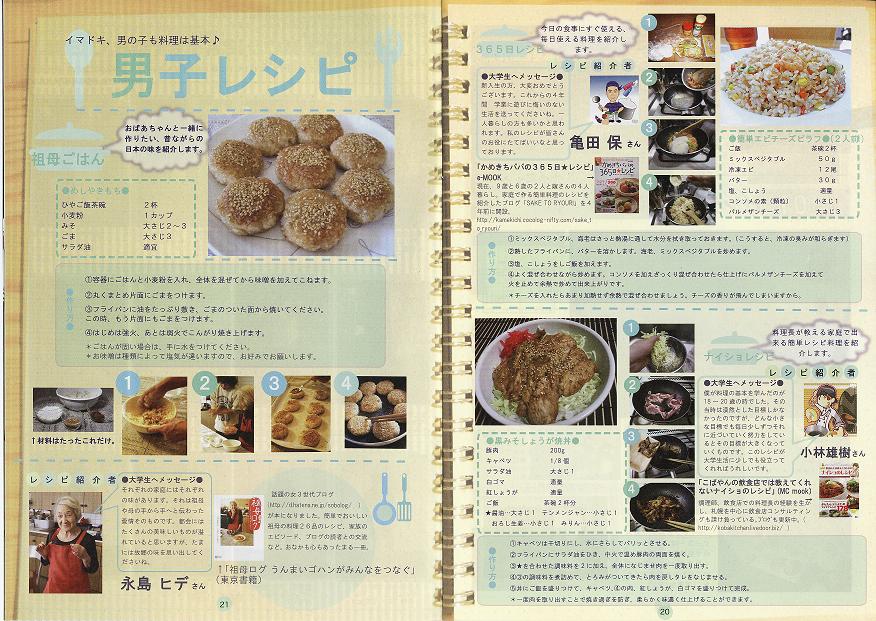 イマドキ、男の子も料理は基本♪
男子レシピ
おばあちゃんと一緒に
作りたい、昔ながらの
日本の味を紹介します。
祖母ごはん
●めしやきもち●
ひやご飯茶碗 2杯
小麦粉 1カップ
みそ 大さじ2~3
ごま 大さじ3
サラダ油 適宜
●作り方●
①容器にごはんと小麦粉を入れ、全体を混ぜてから味噌を加えてこねます。
②丸くまとめ片面にごまをつけます。
③フライパンに油をたっぷり敷き、ごまのついた面から焼いてください。
この時、もう片面にもごまをつけます。
④はじめは強火、あとは弱火でこんがり焼き上げます。
*ごはんが固い場合は、手に水をつけてください。
*お味噌は種類によって塩気が違いますので、お好みでお願いします。
1
2
3
4
↑材料はたったこれだけ。
レシピ紹介者
●大学生へメッセージ●
それぞれの家庭にはそれぞれ
の味があります。それは祖母
や母の手から手へと伝わった
愛情そのものです。都会には
たくさんの美味しいものが溢
れていると思いますが、たま
には故郷の味を思い出してく
ださいね。
永島 ヒデさん
祖母ログ
話題の女3世代ブログ
(http://dhatenane.jp/sobolog/)
が本になりました。簡単でおいしい
祖母の料理26品のレシピ、家族の
エピソード、ブログの読者との交流
など。おなかも心もあったまる一冊。
↑「祖母ログ うんまいゴハンがみんなをつなぐ」
(東京書籍)
21
今日の食事にすぐ使える、
毎日使える料理を紹介し
ます。
365日レシピ
レシピ紹介者
●大学生へメッセージ●
新入生の方、大変おめでとう
ございます。これからの4年
間 学業に遊びに悔いのない
生活を送ってくださいね。一
人暮らしの方も多いかと思わ
れます。私のレシピが皆さん
のお役にたてばいいなと思っ
ております。
亀田 保さん
「かめきちパパの365日★レシピ」
e-MOOK
現在、9歳と6歳の2人と嫁さんの4人
暮らし。家庭で作る簡単料理のレシピを
紹介したブログ「SAKE TO RYOURI」を4
年前に開設。
http://kamekichi.cocolog-nifty.com/sake_t
o_ryouri/
1
2
3
4
●簡単エビチーズピラフ●(2人前)
ご飯 茶碗2杯
ミックスベジタブル 50g
冷凍エビ 12尾
バター 30g
塩、こしょう 適量
コンソメの素(顆粒) 小さじ1
パルメザンチーズ 大さじ3
●作り方●
①ミックスベジタブル、海老はさっと熱湯に通して水分を拭き取っておきます。(こうすると、冷凍の臭みが和らぎます)
②熱したフライパンに、バターを溶かします。海老、ミックスベジタブルを炒めます。
③塩、こしょうをしご飯を加えます。
④よく混ぜ合わせながら炒めます。コンソメを加えざっくり混ぜ合わせたら仕上げにパルメザンチーズを加えて
火を止めて余熱で炒めて出来上がりです。
*チーズを入れたらあまり加熱せず余熱で混ぜ合わせましょう。チーズの香りが飛んでしまいますから。
料理長が教える家庭で出
来る簡単レシピ料理を紹
介します。
ナイショレシピ
レシピ紹介者
●大学生へメッセージ●
僕が料理の基本を学んだのが
18~20歳の時でした。その
当時は漠然とした目標しかな
かったのですが、どんな小さ
な目標でも毎日少しずつそれ
に近づいていく努力をしている
とその目標が大きくなって
いくものです。このレシピが
大学生活に少しでも役立って
くれればうれしいです。
小林雄樹さん
「こばやんの飲食店では教えてくれ
ないナイショのレシピ」(MC mook)
調理師、飲食店での料理長の経験を生か
し、札幌を中心に飲食店コンサルティン
グも請け負っている。ブログも更新中。(
http://kobakitchen.livedoor.biz/ )
1
2
3
4
●黒みそしょうが焼丼●
豚肉 200g
キャベツ 1/8個
サラダ油 大さじ1
白ゴマ 適量
紅しょうが 適量
ご飯 茶碗2杯分
★醤油…大さじ1 テンメンジャン…小さじ1
おろし生姜…小さじ1 みりん…小さじ1
●作り方●
①キャベツは千切りにし、水にさらしてパリッとさせる。
②フライパンにサラダ油をひき、中火で温め豚肉の両面を焼く。
③★を合わせた調味料を2に加え、全体になじませ肉を一度取り出す。
④③の調味料を煮詰めて、とろみがついてきたら肉を戻しタレをなじませる。
⑤丼にご飯を盛りつけて、キャベツ、④の肉、紅しょうが、白ゴマを盛りつけて完成。
*一度肉を取り出すことで焼き過ぎを防ぎ、柔らかく味濃く仕上げることができます。
20